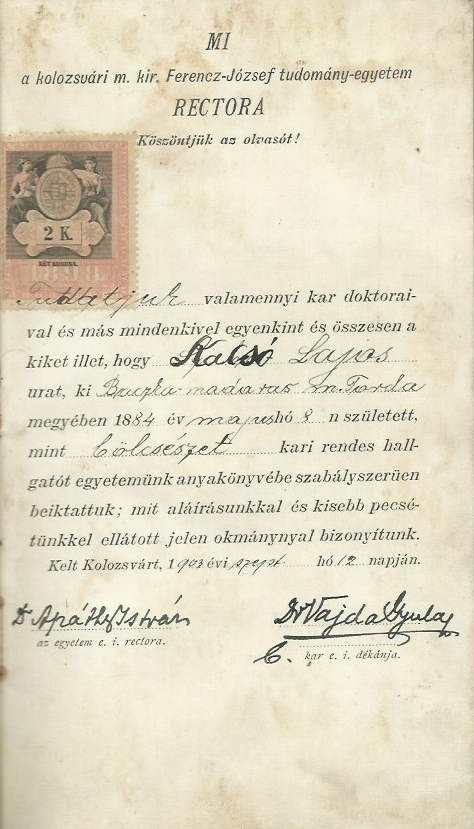 MI
a kolozsvári m. kir. Ferencz-József tudomány-egyetem
RECTORA
Köszöntjük az olvasót!
2 K.
KÉT KORONA.
Tudtatjuk valamennyi kar doktorai-
val és más mindenkivel egyenkint és összesen a
kiket illet, hogy Lajos
urat, ki madaras m. Torda
megyében 1884 év majus hó 8 n született,
mint bölcsészet kari rendes hall-
gatót egyetemünk anyakönyvébe szabályszerüen
beiktattuk; mit aláirásunkkal és kisebb pecsé-
tünkkel ellátott jelen okmánynyal bizonyitunk.
Kelt Kolozsvárt, 1903 évi szept. hó 12 napján.
Dr Apáthy István
az egyetem e. i. rectora.
Dr Vajda Gyula
b. kar e. i. dékánja.